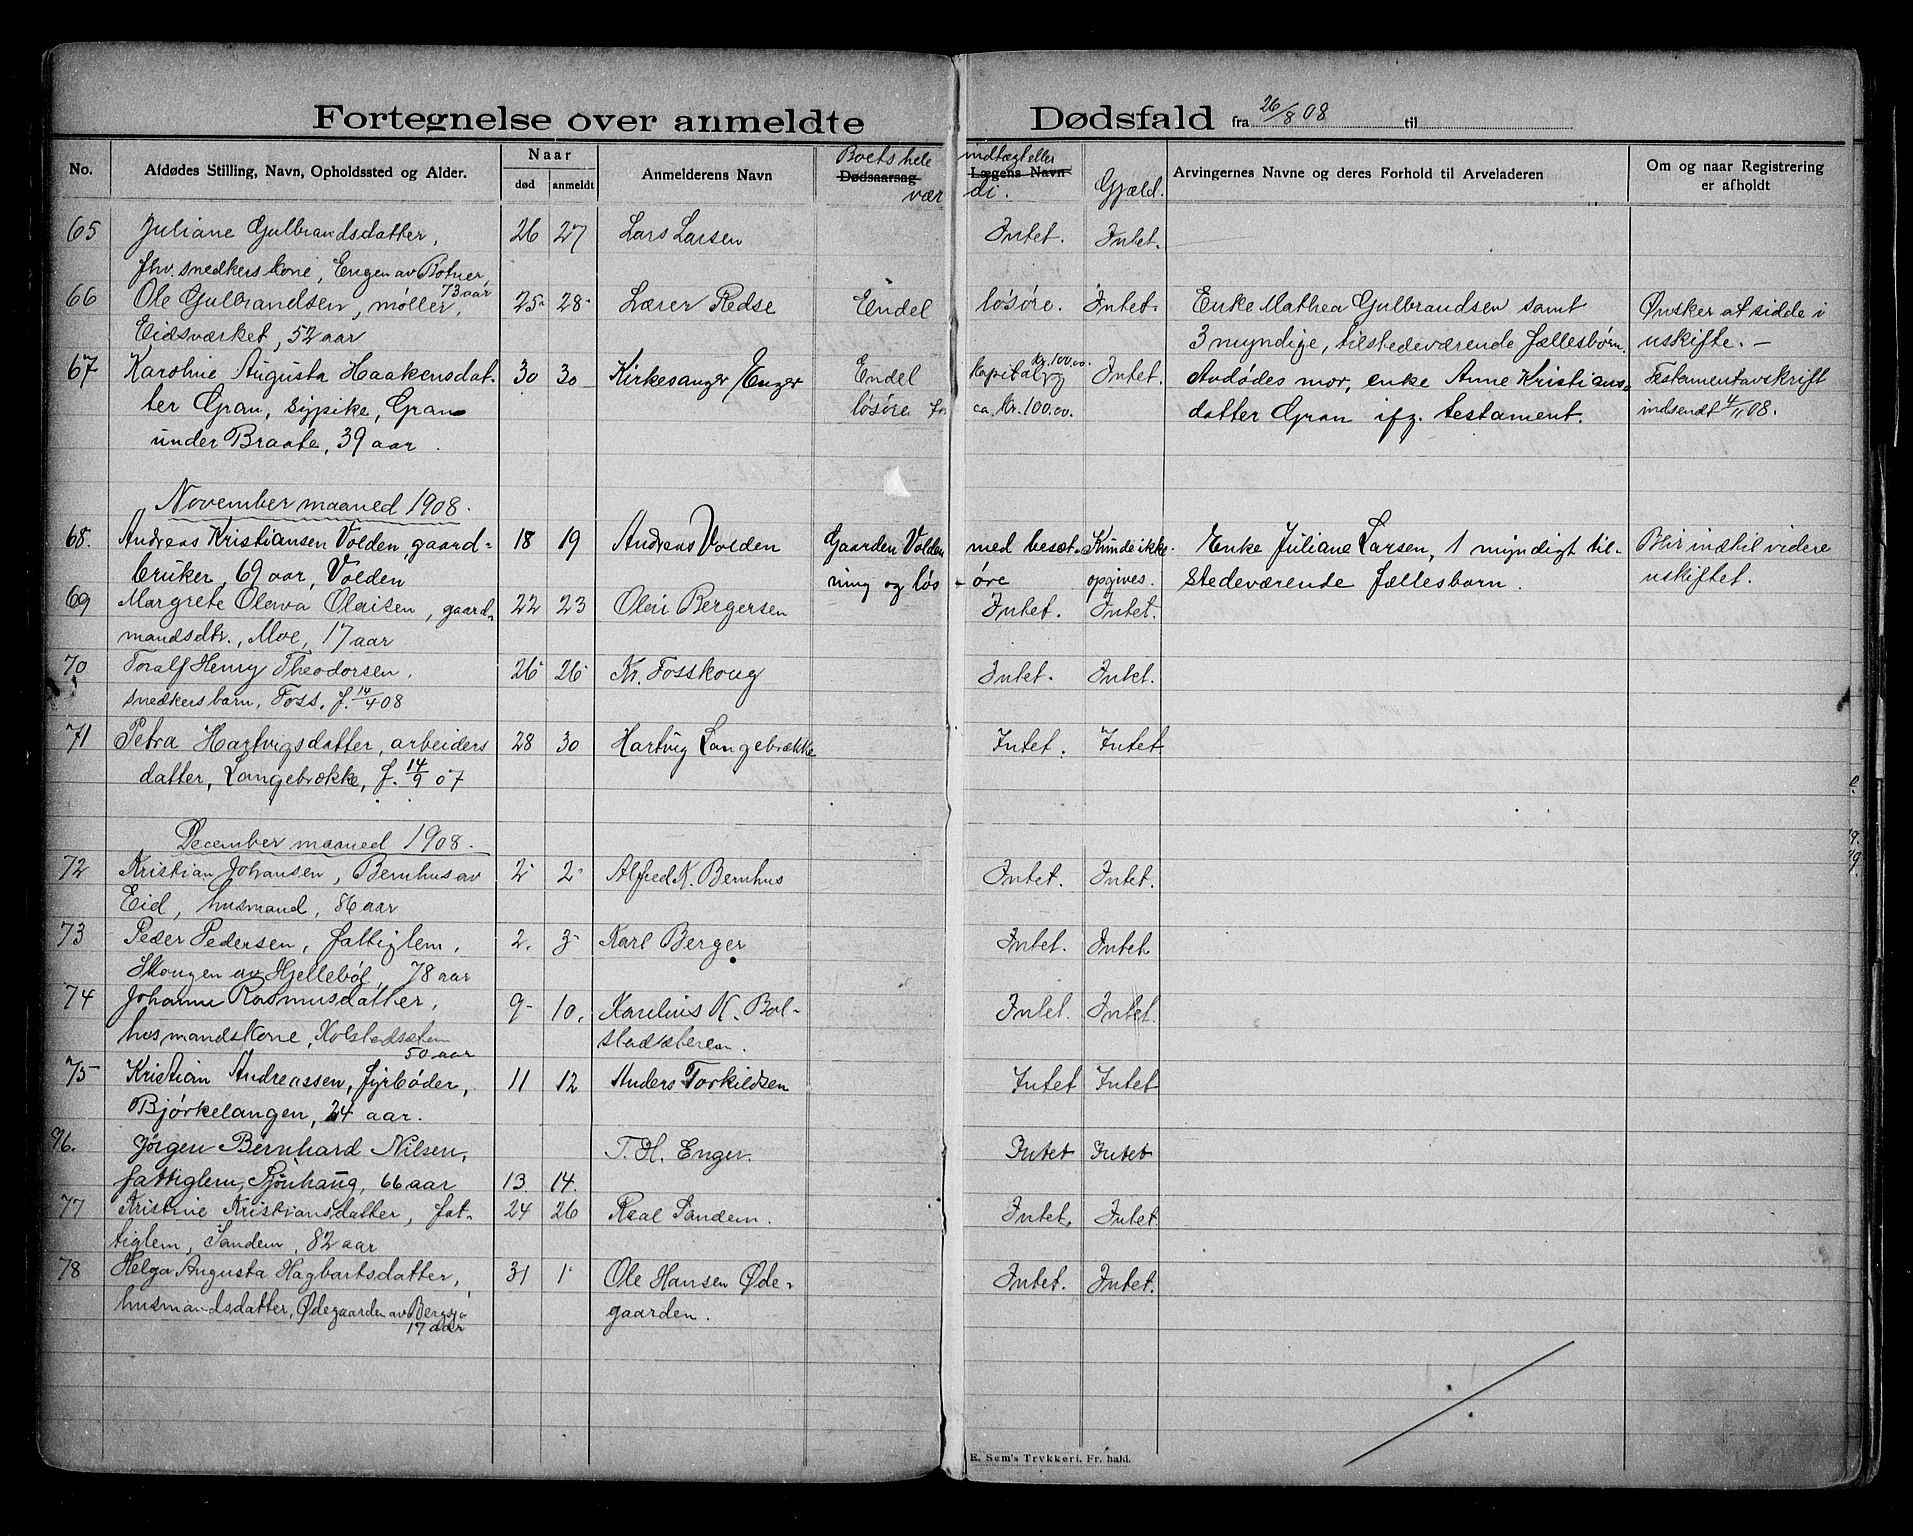 Fortegnelse over anmeldte Dødsfald fra 26/8 08 til
No. Afdødes Stilling, Navn, Opholdssted og Alder. Naar død anmeldt Anmelderens Navn Boets hele indtægt eller værdi. Dødsaarsag Lægens Navn Gjæld. Arvingernes Navne og deres Forhold til Arveladeren Om og naar Registrering er afholdt
65 Juliane Gulbrandsdatter, 26 27 Lars Larsen Intet. Intet.
fhv. snedkers kone, Engen av Botner, 73 aar
66 Ole Gulbrandsen, møller, 25 28 Lærer Redse Endel løsøre. Intet. Enke Mathea Gulbrandsen samt Ønsker at sidde i
Eidsværket, 52 aar 3 myndige, tilstedeværende fællesbørn. uskifte. –
67 Karoline Augusta Haakensdat- 30 30 Kirkesanger Enger Endel kapital kr. 100.00. Intet. Avdødes mor, enke Anne Kristians- Testamentavskrift
ter Gran, sypike, Gran løsøre ca. kr. 100.00. datter Gran ifg. testament. indsendt 4/11 08.
under Braate, 39 aar.
November maaned 1908.
68. Andreas Kristiansen Volden, gaard- 18 19 Andreas Volden Gaarden Volden med besæt- Kunde ikke Enke Juliane Larsen, 1 myndigt til- Blir indtil videre
bruker, 69 aar, Volden ning og løs-øre opgives. stedeværende fællesbarn. uskiftet.
69 Margrete Olava Olaisen, gaard- 22 23 Olai Bergersen Intet. Intet.
mandsdtr., Moe, 17 aar
70 Toralf Henry Theodorsen, 26 26 Kr. Fosskoug Intet. Intet.
snedkersbarn, Foss, f. 14/4 08
71 Petra Hartvigsdatter, arbeiders 28 30 Hartvig Langebrække Intet. Intet
datter, Langebrække, f. 14/9 07
December maaned 1908.
72 Kristian Johansen, Bernhus av 2 2 Alfred K. Bernhus Intet. Intet.
Eid, husmand, 86 aar
73 Peder Pedersen, fattiglem, 2. 3 Karl Berger Intet. Intet
Skougen av Hjellebøl, 78 aar
74 Johanne Rasmusdatter, 9 10. Karelius K. Bol- Intet. Intet.
husmandskone, Kolstadsætern 50 aar stadsæteren.
75 Kristian Andreassen, fyrbøder, 11 12 Anders Torkildsen Intet Intet
Bjørkelangen, 24 aar.
76. Jørgen Bernhard Nilsen, T. H. Enger. Intet Intet
fattiglem, Sjønhaug, 66 aar 13. 14.
77 Kristine Kristiansdatter, fat- 24 26 Roal Sandem. Intet. Intet
tiglem, Sandem, 82 aar
78 Helga Augusta Hagbartsdatter, 31 1 Ole Hansen Øde- Intet. Intet.
husmandsdatter, Ødegaarden av Bergsjø 17 aar gaarden.
E. Sem's Trykkeri, Fr. hald.